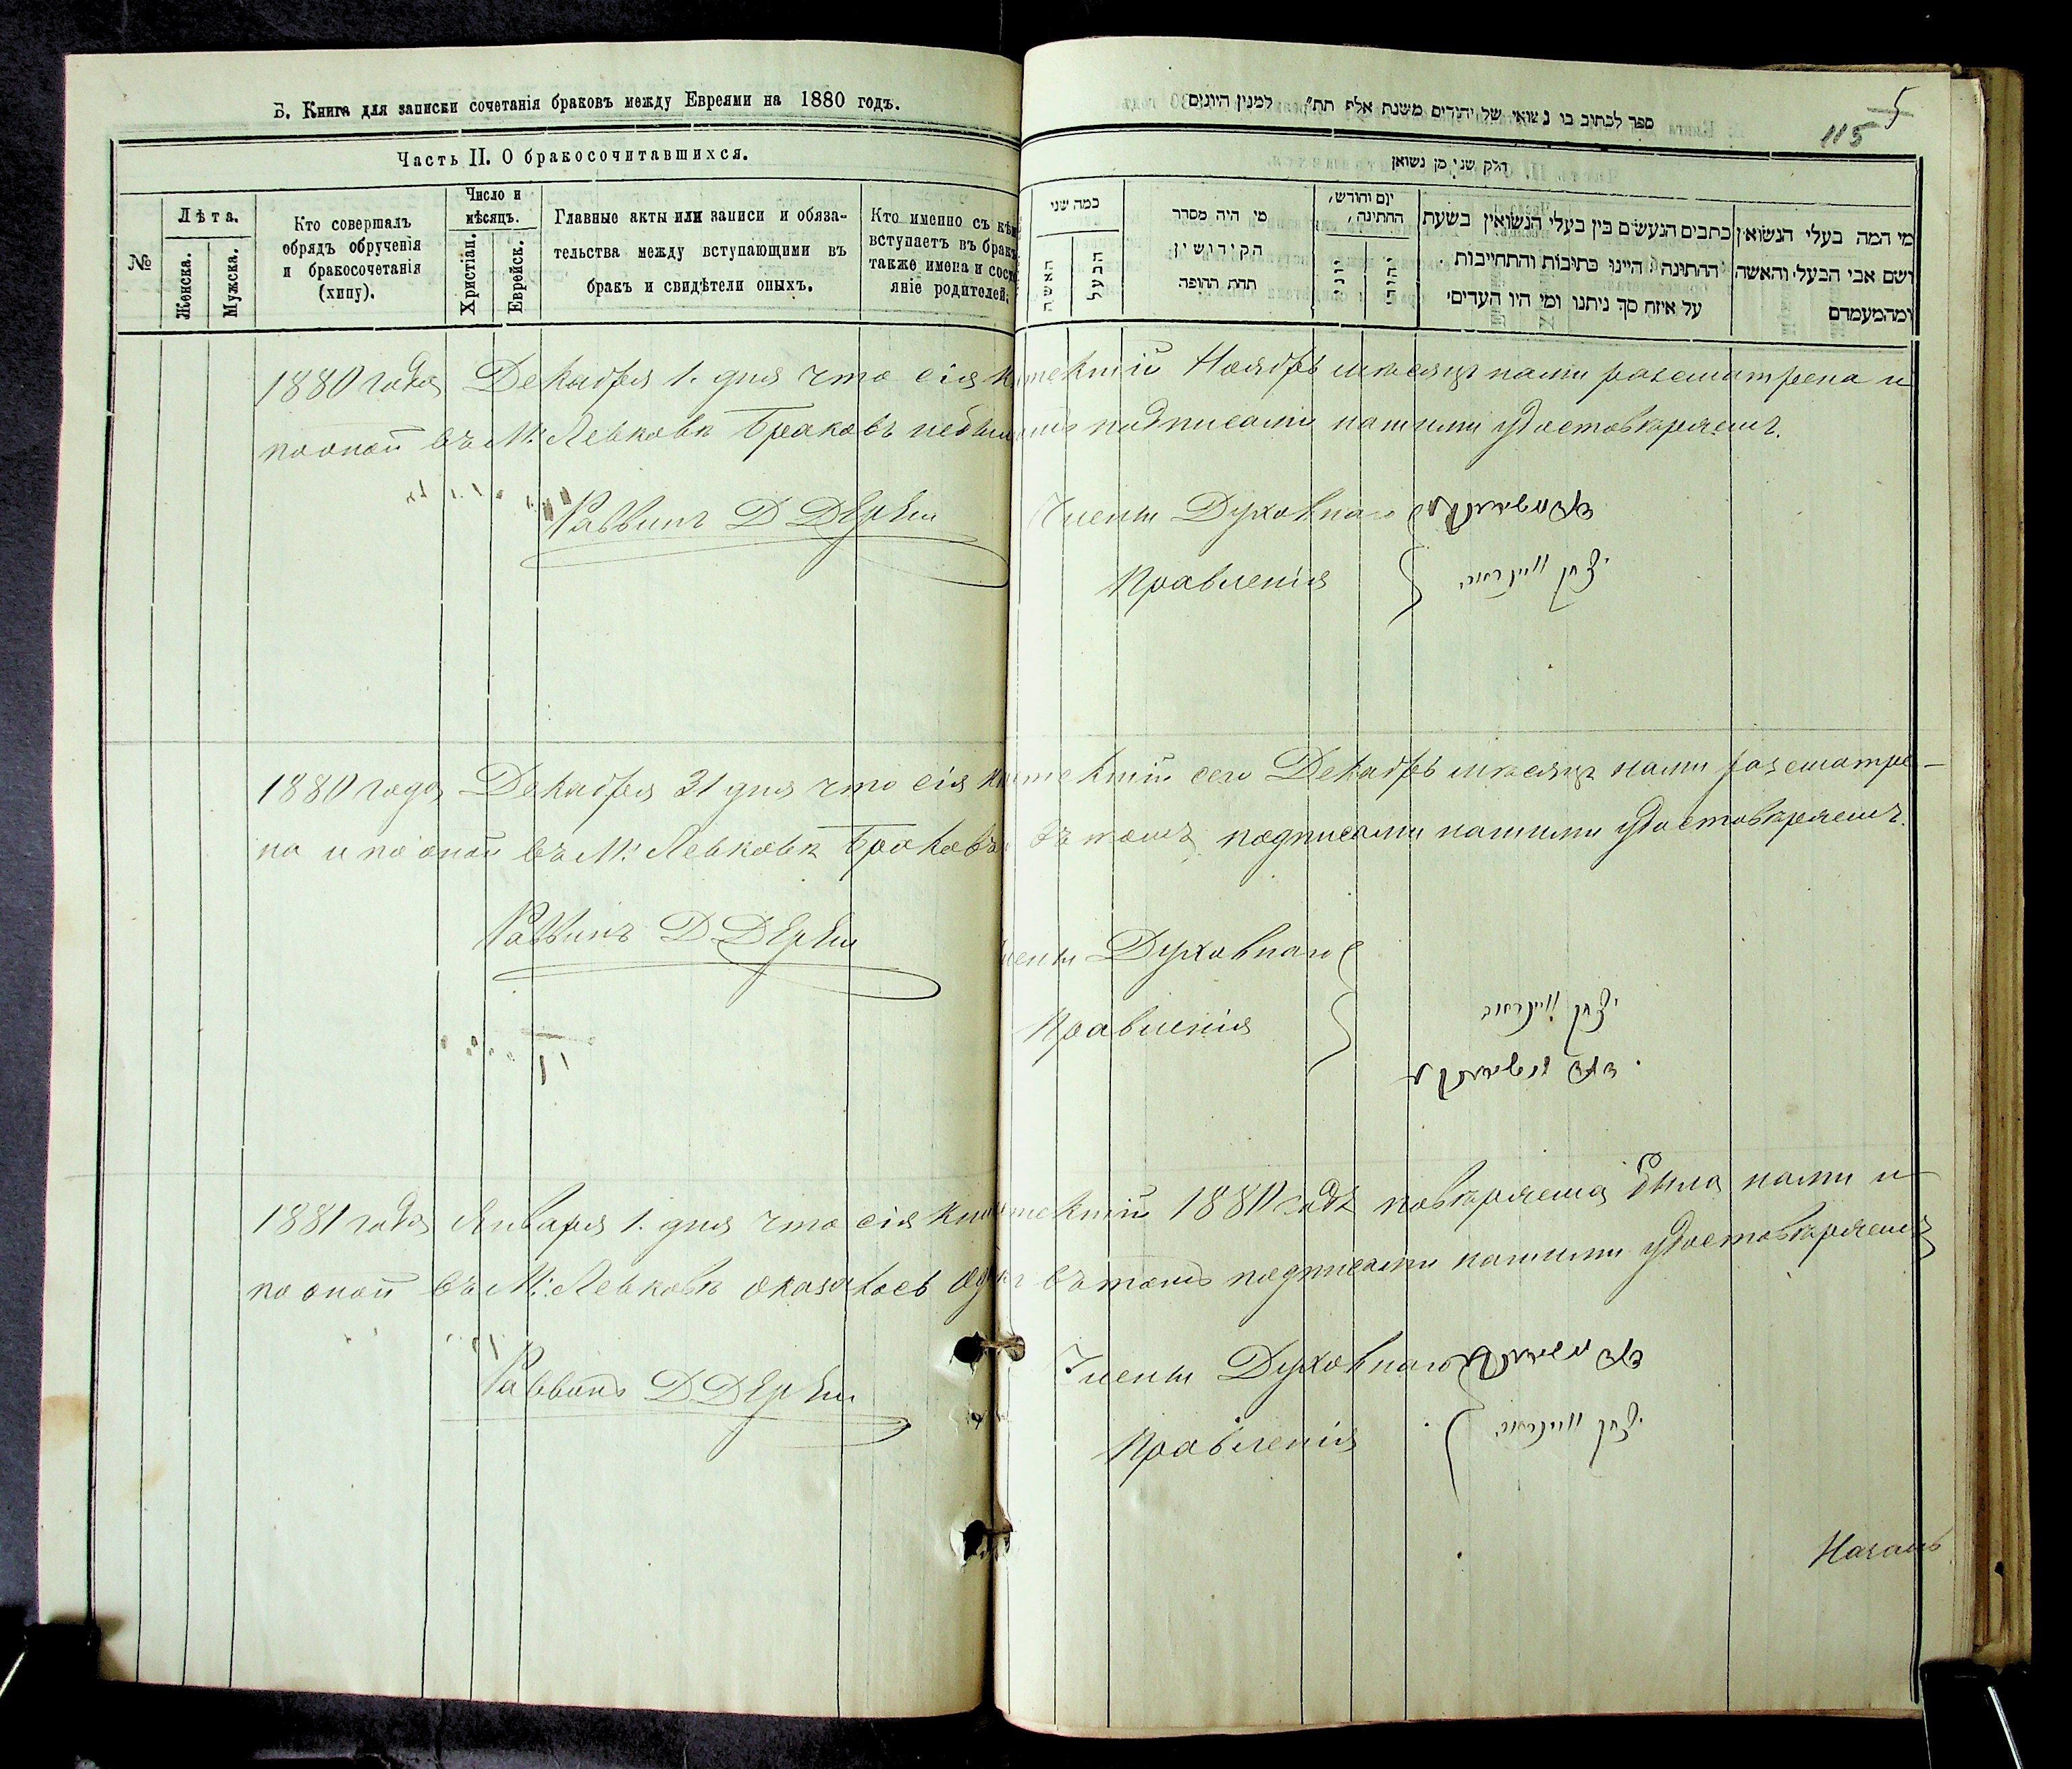 Б. Книга для записки сочетанія браковъ между Евреями на 1880 годъ.
Часть II. О бракосочитавшихся.
№
Лѣта.
Женска.
Мужска.
Кто совершалъ
обрядъ обрученія
и бракосочетанія
(хипу).
Число и
мѣсяцъ.
Христіан.
Еврейск.
Главные акты или записи и обяза-
тельства между вступающими въ
бракъ и свидѣтели оныхъ.
Кто именно съ кѣм
вступаетъ въ бракъ
также имена и состо
яніе родителей.
5
115
ספר לכתוב בו נשואי של יהודים משנת אלף תת״ למנין היונים
חלק שני מן נשואין
כמה שני
האשה
הבעל
מי היה מסדר
הקידושין
תחת החופה
יום וחודש,
החתינה,
יוני
יהודי
כתבים הנעשים בין בעלי הנשואין בשעת
החתונה היינו כתובות והתחייבות
על איזה סך ניתנו ומי היו העדים
מי המה בעלי הנשואין
ושם אבי הבעל והאשה
ומהמעמדם
1880 года Декабря 1. дня что сія кн текшій Ноябрь мѣсяцъ нами разсматрена и
по оной въ М: Левковѣ Браковъ небыло подписами нашими удостовѣряемъ.
Раввинъ Д
Члены Духовнаго
Правленія
1880 года Декабря 31 дня что сія кн текшій сего Декабрь мѣсяцъ нами разсматре-
на и по оной въ М: Левковѣ Браковъ въ томъ подписами нашими удостовѣряемъ.
Раввинъ Д
Члены Духовнаго
Правленія
1881 года Января 1. дня что сія кни текшій 1880 годъ повѣряема была нами и
по оной въ М: Левковѣ оказалось въ томъ подписами нашими удостовѣряемъ
Раввинъ Д
Члены Духовнаго
Правленія